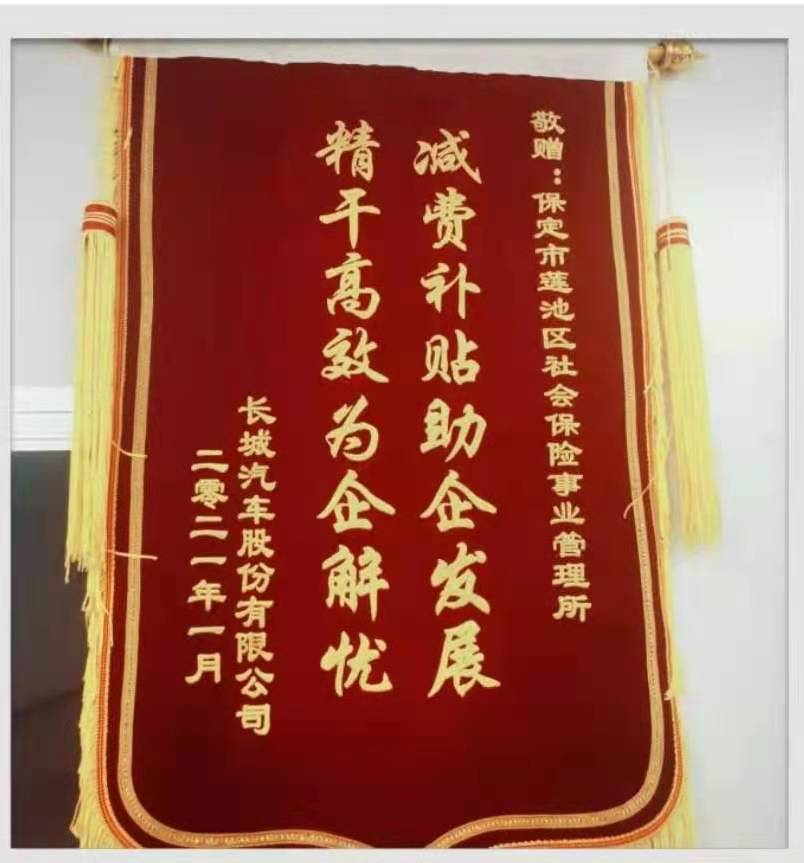 敬赠：保定市莲池区社会保险事业管理所
减费补贴助企发展
精干高效为企解忧
长城汽车股份有限公司
二零二一年一月